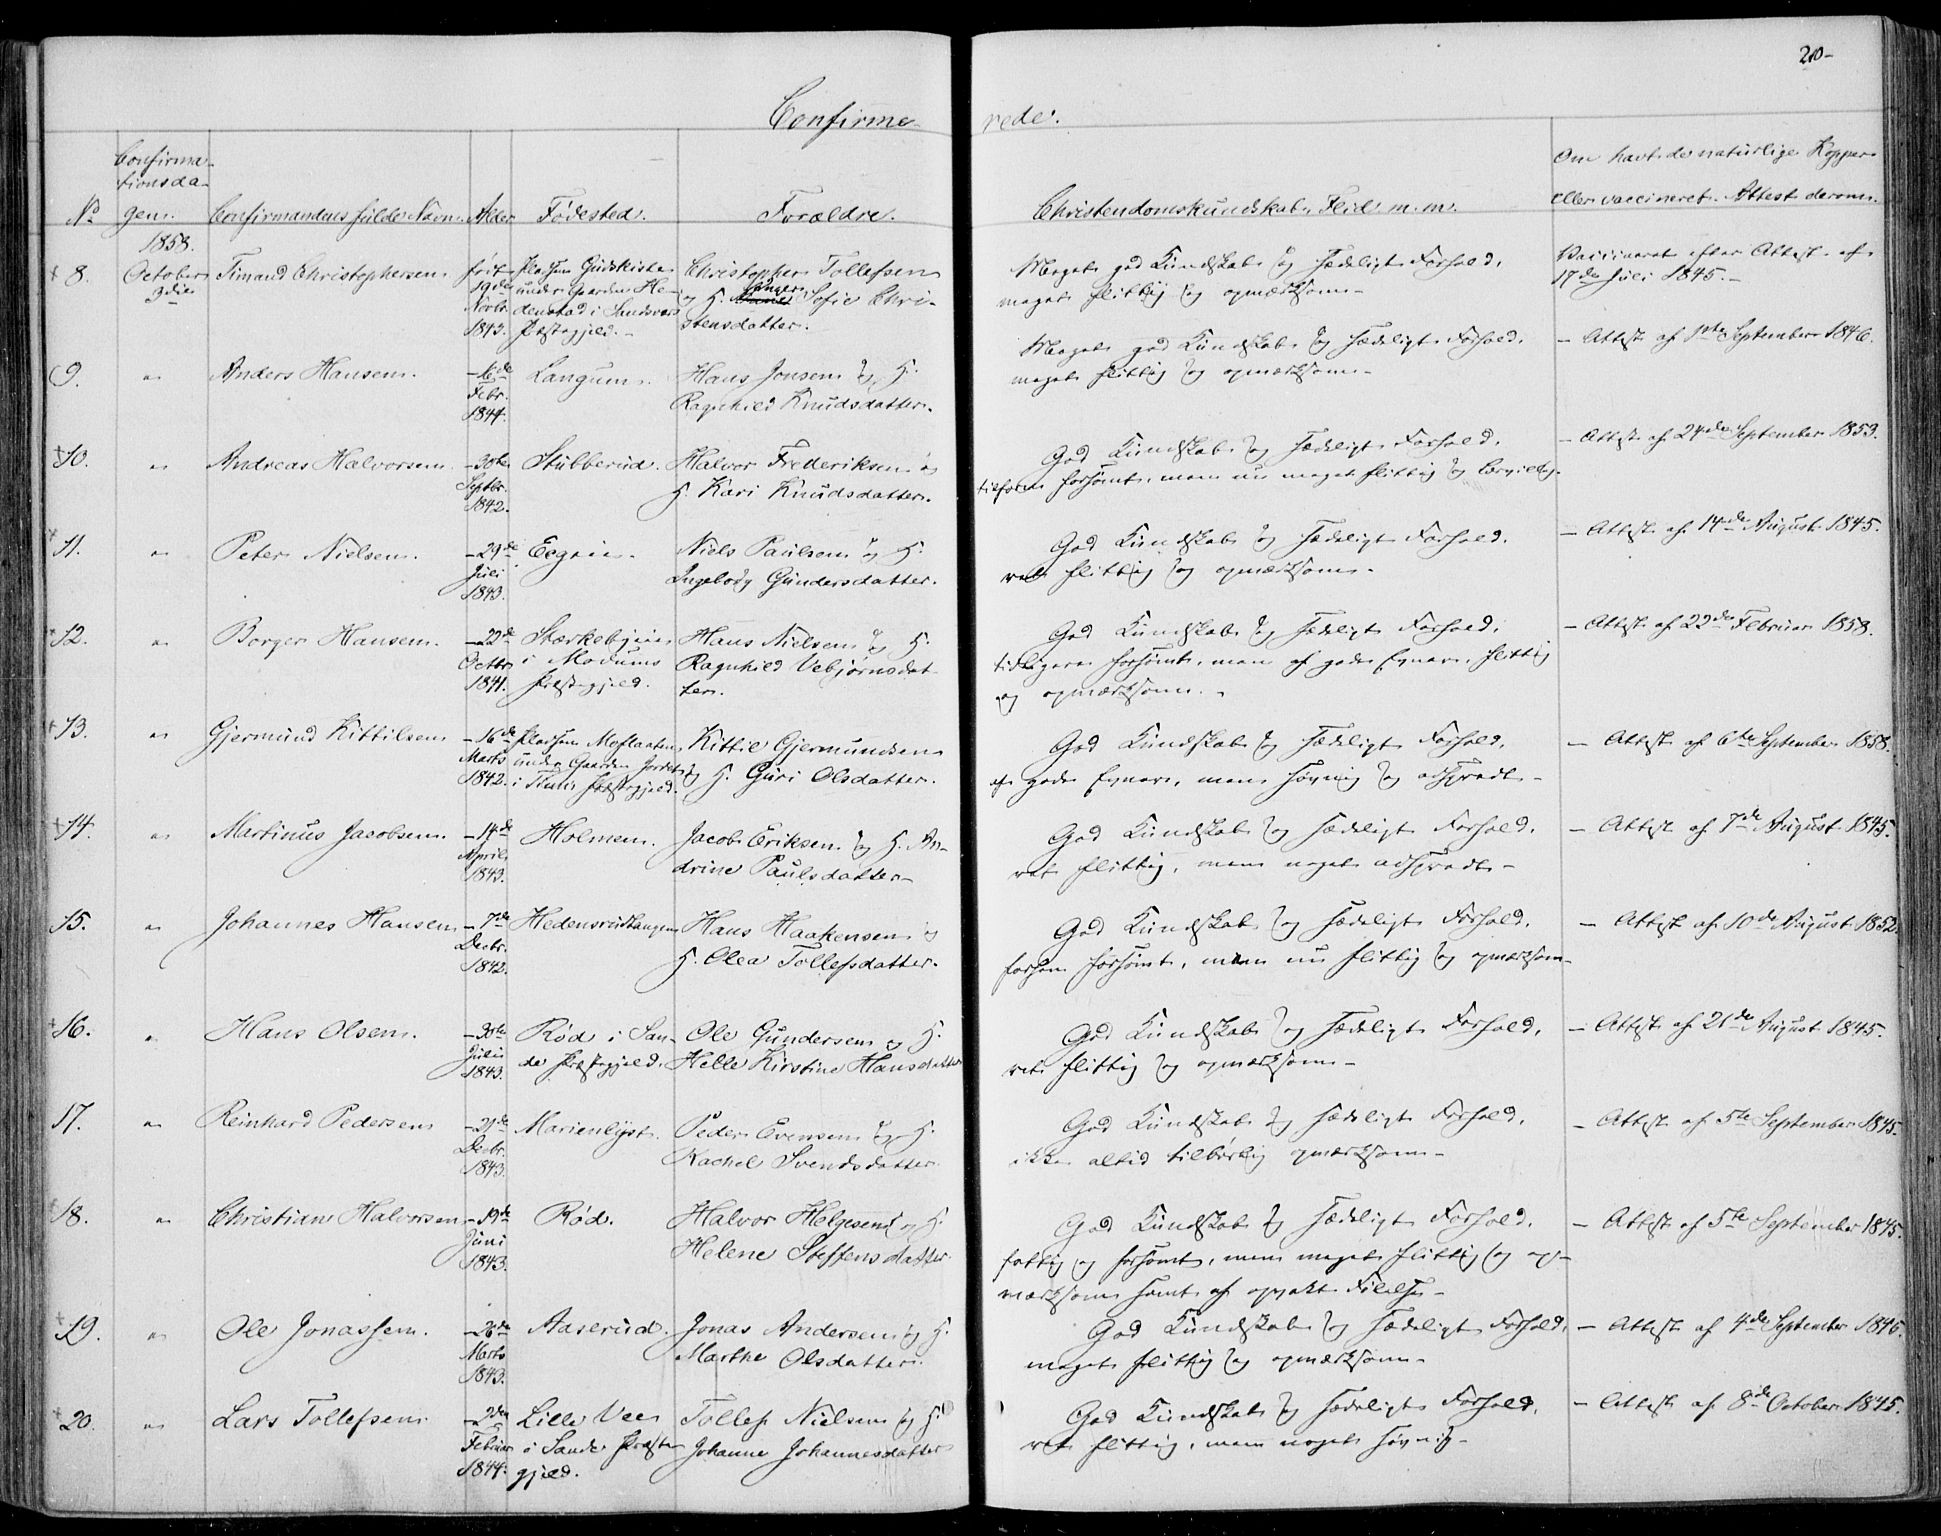 210-
Confirme-
rede.
Confirma-
tionsda-
gen.
No
Confirmandens fulde Navn.
Alder
Fødested.
Forældre.
Christendomskundskab, Flid m. m.
Om havt de naturlige Kopper
eller vaccineret. Attest derom.
1858.
8.
October
3die
Timand Christophersen
født
19de
Novbr.
1843.
Pladsen Gudskista
under Gaarden He-
denstad i Sandsvær
Præstegjeld.-
Christopher Tollefsen
og H. Sofie Chri-
stensdatter.
Meget god Kundskab og sædeligt Forhold.
meget flittig og opmærksom-
Vaccineret efter Attest af
17de Juli 1845.-
9.
"
Anders Hansen.
-16de
Febr.
1844.
Langum.
Hans Jonsen og H.
Ragnhild Knudsdatter.
Meget god Kundskab og sædeligt Forhold.
meget flittig og opmærksom-
- Attest af 1ste September 1846.
10.
"
Andreas Halvorsen
-30te
Septbr.
1842.
Stubberud.
Halvor Frederiksen og
H. Kari Knudsdatter.
God Kundskab og sædeligt Forhold.
tilforn forsømt, men nu meget flittig og lærvillig.
- Attest af 24de September 1853.
11.
"
Peter Nielsen.
-29de
Juli
1843.
Eegeie.
Niels Paulsen og H.
Ingeborg Gundersdatter.
God Kundskab og sædeligt Forhold.
ret flittig og opmærksom-
- Attest af 14de August 1845.
12.
"
Borger Hansen.
-22de
Octbr.
1841.
Stærkebyeie
i Modums
Præstegjeld.
Hans Nielsen og H.
Ragnhild Vebjørnsdat-
ter.
God Kundskab og sædeligt Forhold.
tidligere forsømt, men af gode Evner, flittig
og opmærksom.-
- Attest af 22de Februar 1858.
13.
"
Gjermund Kittilsen
-16de
Marts
1842.
Pladsen Moflaaten
under Gaarden Jordet
i Præstegjeld.
Kittil Gjermundsen
og H. Guri Olsdatter.
God Kundskab og sædeligt Forhold.
af gode Evner, men søvnig og adspredt-
- Attest af 6te September 1858.
14.
"
Martinus Jacobsen.
-14de
April
1843.
Holmen.
Jacob Eriksen og H. An-
drine Paulsdatter-
God Kundskab og sædeligt Forhold.
ret flittig, men noget adspredt-
- Attest af 7de August 1845.
15.
"
Johannes Hansen
-7de
Decbr.
1842.
Hedensrudtangen
Hans Haakensen og
H. Olea Tollefsdatter.
God Kundskab og sædeligt Forhold.
forhen forsømt, men nu flittig og opmærksom-
- Attest af 10de August 1852.
16.
"
Hans Olsen.
-30te
Juli
1843.
Rød i San-
de Præstegjeld.
Ole Gundersen og H.
Helle Kirstine Hansdatter
God Kundskab og sædeligt Forhold.
ret flittig og opmærksom-
- Attest af 21de August 1845.
17.
"
Reinhard Pedersen
-21de
Decbr.
1843.
Marienlyst.
Peder Evensen og H.
Rachel Svendsdatter.
God Kundskab og sædeligt Forhold.
ikke altid tilbørlig opmærksom-
- Attest af 5te September 1845.
18.
"
Christian Halvorsen
-19de
Juni
1843.
Rød.
Halvor Helgesen og H.
Helene Steffensdatter
God Kundskab og sædeligt Forhold.
fattig og forsømt, men meget flittig og op-
mærksom samt af opvakt Følelse-
- Attest af 5te September 1845.
19.
"
Ole Jonassen.
-26de
Marts
1843.
Aaserud.
Jonas Andersen og H.
Marthe Olsdatter.
God Kundskab og sædeligt Forhold.
meget flittig og opmærksom-
- Attest af 4de September 1846.
20.
"
Lars Tollefsen
-2den
Februar
1844.
Lille Vee
i Sande Præste-
gjeld.
Tollef Nielsen og H.
Johanne Johannesdatter
God Kundskab og sædeligt Forhold.
ret flittig, men noget søvnig-
- Attest af 8de October 1845.